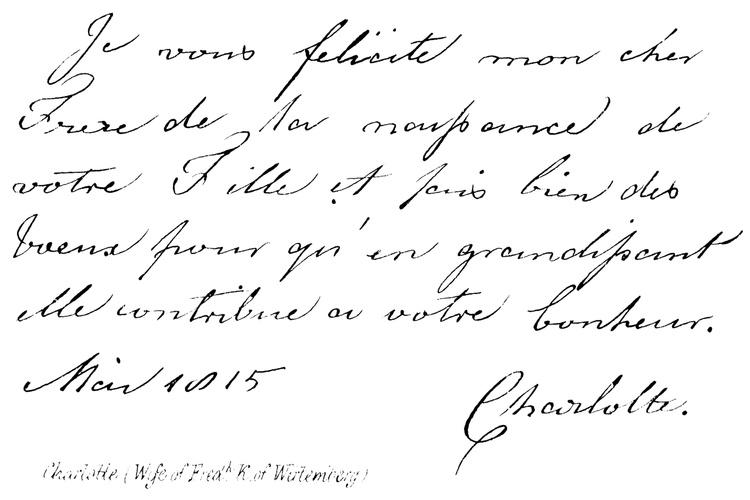 Je vous felicite mon cher
Frere de la naissance de
votre Fille et fais bien des
voeux pour qu'en grandissant
elle contribue a votre bonheur.
Mai 1815
Charlotte.
Charlotte (Wife of Fredk K. of Wirtemberg)